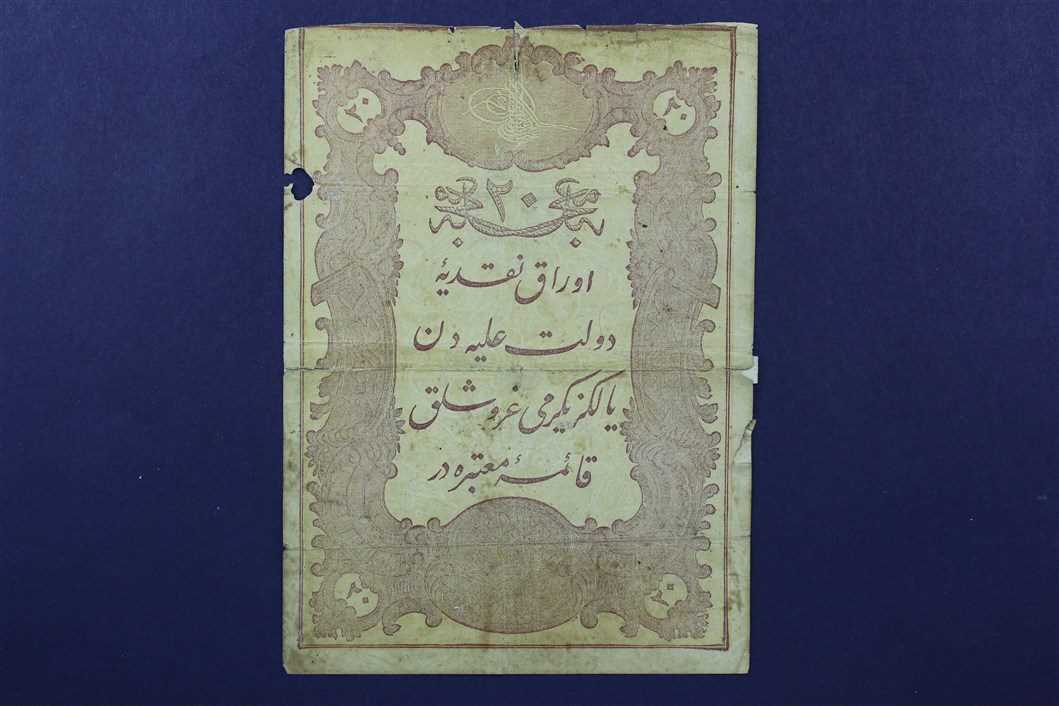 ٢٠ ٢٠
٢٠
اوراق نقدیۀ
دولت علیه دن
یالكز یكرمی غروشلق
قائمۀ معتبره در
٢٠ ٢٠